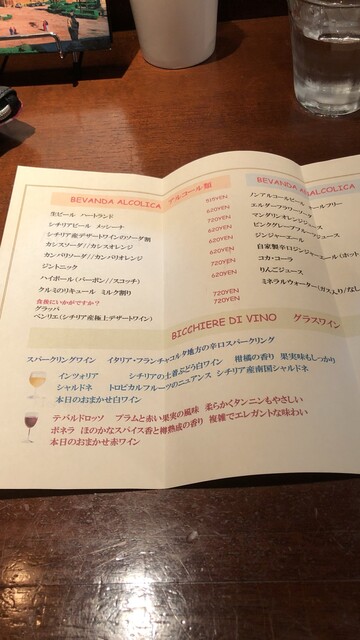 BEVANDA ALCOLICA アルコール類
生ビール ハートランド 510YEN
シチリアビール メッシーナ 620YEN
シチリア産デザートワインのソーダ割 720YEN
カシスソーダ//カシスオレンジ 620YEN
カンパリソーダ//カンパリオレンジ 620YEN
ジントニック 620YEN
ハイボール(バーボン//スコッチ) 620YEN
クルミのリキュール ミルク割り
食後にいかがですか?
グラッパ 720YEN
ベンリエ(シチリア産極上デザートワイン) 720YEN
BEVANDA ANALCOLICA
ノンアルコールビール フリー
エルダーフラワーソーダ
マンダリンオレンジジュース
ピンクグレープフルーツジュース
ジンジャーエール
自家製辛口ジンジャーエール(ホット
コカ・コーラ
りんごジュース
ミネラルウォーター(ガス入り/なし
BICCHIERE DI VINO グラスワイン
スパークリングワイン イタリア・フランチャコルタ地方の辛口スパークリング
インツォリア シチリアの土着ぶどう白ワイン 柑橘の香り 果実味もしっかり
シャルドネ トロピカルフルーツのニュアンス シチリア産南国シャルドネ
本日のおまかせ白ワイン
テバルドロッソ プラムと赤い果実の風味 柔らかくタンニンもやさしい
ボネラ ほのかなスパイス香と樽熟成の香り 複雑でエレガントな味わい
本日のおまかせ赤ワイン